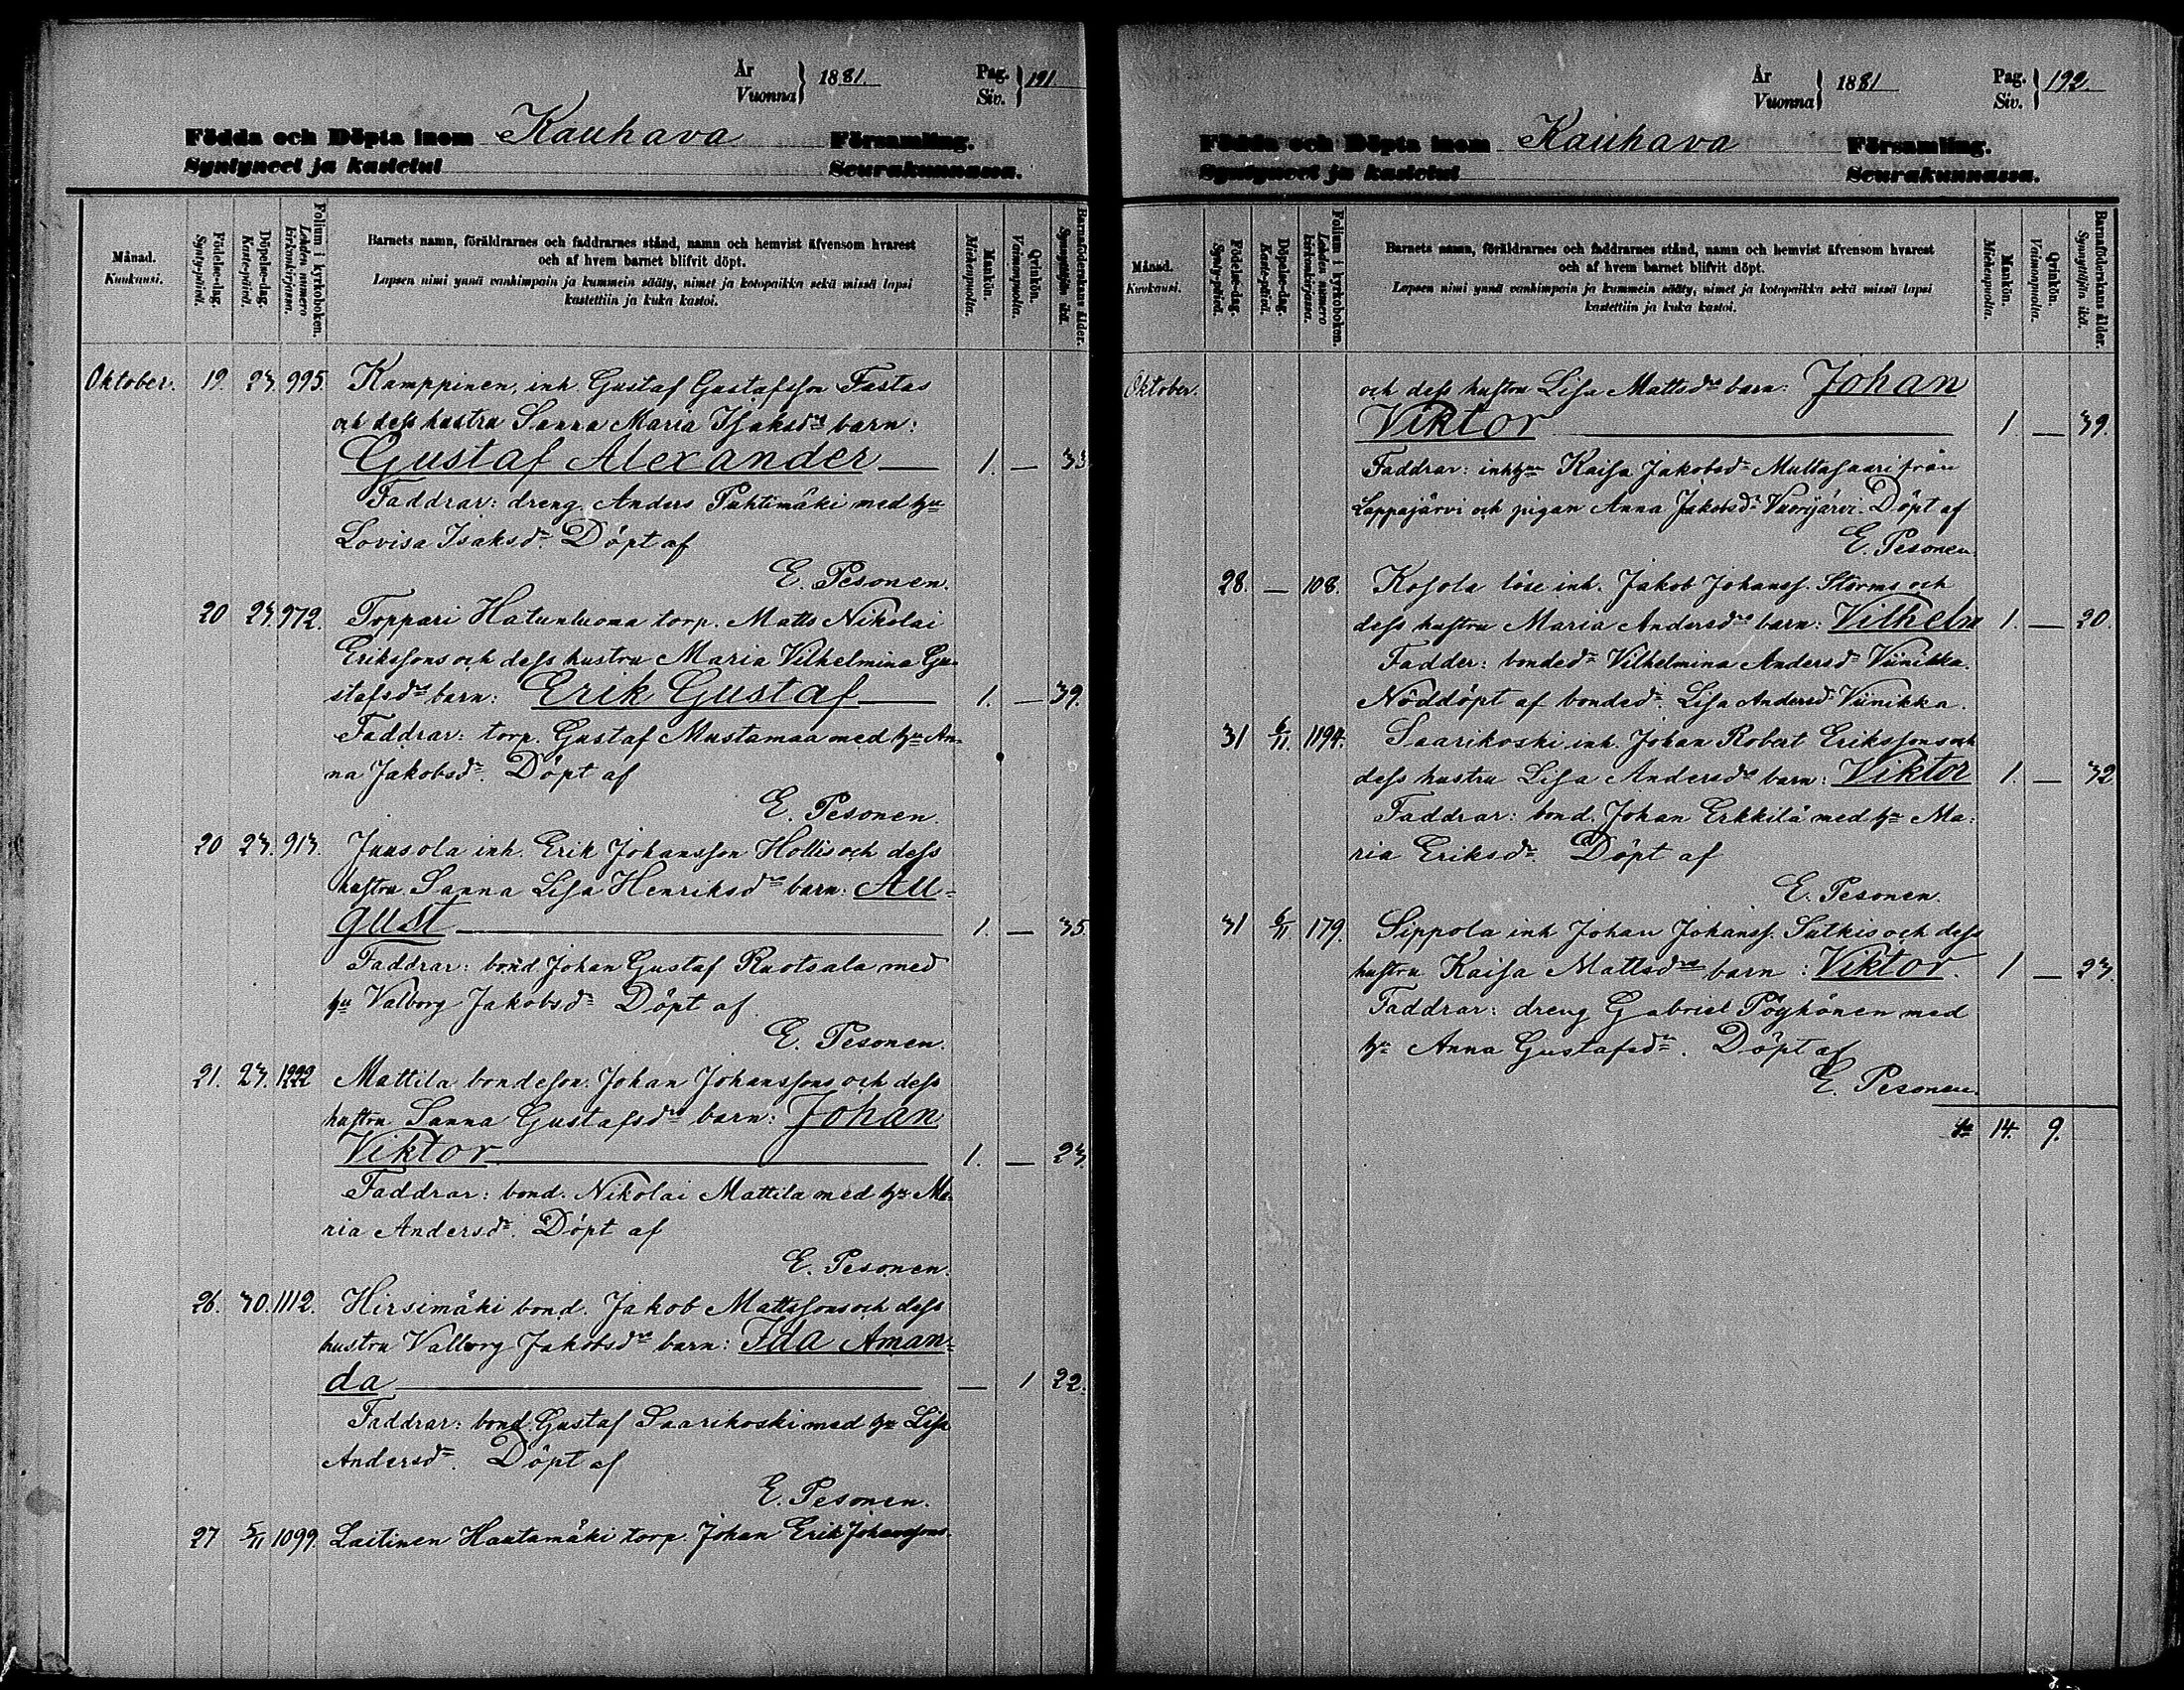 År
Vuonna } 1881.
Pag.
Siv. } 191.
Födda och Döpta inom Kauhava Församling.
Syntyneet ja kastetut Seurakunnassa.
Månad.
Kuukausi.
Födelse-dag.
Synty-päivä.
Döpelse-dag.
Kaste-päivä.
Folium i kyrkoboken.
Lehden numero kirkonkirjassa.
Barnets namn, föräldrarnes och faddrarnes stånd, namn och hemvist äfvensom hvarest
och af hvem barnet blifvit döpt.
Lapsen nimi ynnä vanhimpain ja kummein sääty, nimet ja kotopaikka sekä missä lapsi
kastettiin ja kuka kastoi.
Mankön.
Miehenpuolia.
Qvinkön.
Vaimonpuolia.
Barnaföderskans ålder.
Synnyttäjän ikä.
Oktober. 19. 23. 995. Kamppinen, inh. Gustaf Gustafsson Fastas
och dess hustru Sanna Maria Isaksdrs barn:
Gustaf Alexander — 1. — 33
Faddrar: dreng. Anders Puhtimäki med hu
Lovisa Isaksdr. Döpt af
E. Pesonen.
20 23. 972. Toppari Hatunluoma torp. Matts Nikolai
Erikssons och dess hustru Maria Vilhelmina Gu-
stafsdrs barn: Erik Gustaf — 1. — 39.
Faddrar: torp. Gustaf Mustamaa med hu An-
na Jakobsdr. Döpt af
E. Pesonen.
20 23. 913. Juusola inh. Erik Johansson Hollis och dess
hustru Sanna Lisa Henriksdrs barn: Au-
gust — 1. — 35.
Faddrar: bond. Johan Gustaf Ruotsala med
hu Valborg Jakobsdr Döpt af
E. Pesonen.
21. 23. 1222 Mattila bondeson. Johan Johanssons och dess
hustru Sanna Gustafsdrs barn: Johan
Viktor — 1. — 23.
Faddrar: bond. Nikolai Mattila med hu Ma-
ria Andersdr. Döpt af
E. Pesonen.
26. 30. 1112. Hirsimäki bond. Jakob Mattssons och dess
hustru Valborg Jakobsdrs barn: Ida Aman-
da — — 1 22.
Faddrar: bond. Gustaf Saarikoski med hu Lisa
Andersdr. Döpt af
E. Pesonen.
27 5/11 1099. Laitinen Hautamäki torp. Johan Erik Johanssons
År
Vuonna } 1881
Pag.
Siv. } 192.
Födda och Döpta inom Kauhava Församling.
Syntyneet ja kastetut Seurakunnassa.
Månad.
Kuukausi.
Födelse-dag.
Synty-päivä.
Döpelse-dag.
Kaste-päivä.
Folium i kyrkoboken.
Lehden numero kirkonkirjassa.
Barnets namn, föräldrarnes och faddrarnes stånd, namn och hemvist äfvensom hvarest
och af hvem barnet blifvit döpt.
Lapsen nimi ynnä vanhimpain ja kummein sääty, nimet ja kotopaikka sekä missä lapsi
kastettiin ja kuka kastoi.
Mankön.
Miehenpuolia.
Qvinkön.
Vaimonpuolia.
Barnaföderskans ålder.
Synnyttäjän ikä.
Oktober. och dess hustru Lisa Mattsdrs barn: Johan
Viktor — 1. — 39.
Faddrar: inhhu Kaisa Jakobsdr Multasaari från
Lappajärvi och pigan Anna Jakobsdr Vuorijärvi. Döpt af
E. Pesonen.
28. — 108. Kosola löse inh. Jakob Johanss. Storms och
dess hustru Maria Andersdrs barn: Vilhelm 1. — 20.
Fadder: bondedr Vilhelmina Andersdr Viinikka.
Nöddöpt af bondedr. Lisa Andersdr Viinikka.
31 6/11. 1194. Saarikoski inh. Johan Robert Erikssons och
dess hustru Lisa Andersdrs barn: Viktor 1. — 32
Faddrar: bond. Johan Erkkilä med hu Ma-
ria Eriksdr. Döpt af
E. Pesonen.
31 6/11. 179. Sippola inh Johan Johanss. Sutkis och dess
hustru Kaisa Mattsdrs barn: Viktor. 1 — 23.
Faddrar: dreng Gabriel Pöyhönen med
hu Anna Gustafsdr. Döpt af
E. Pesonen.
Sa 14. 9.